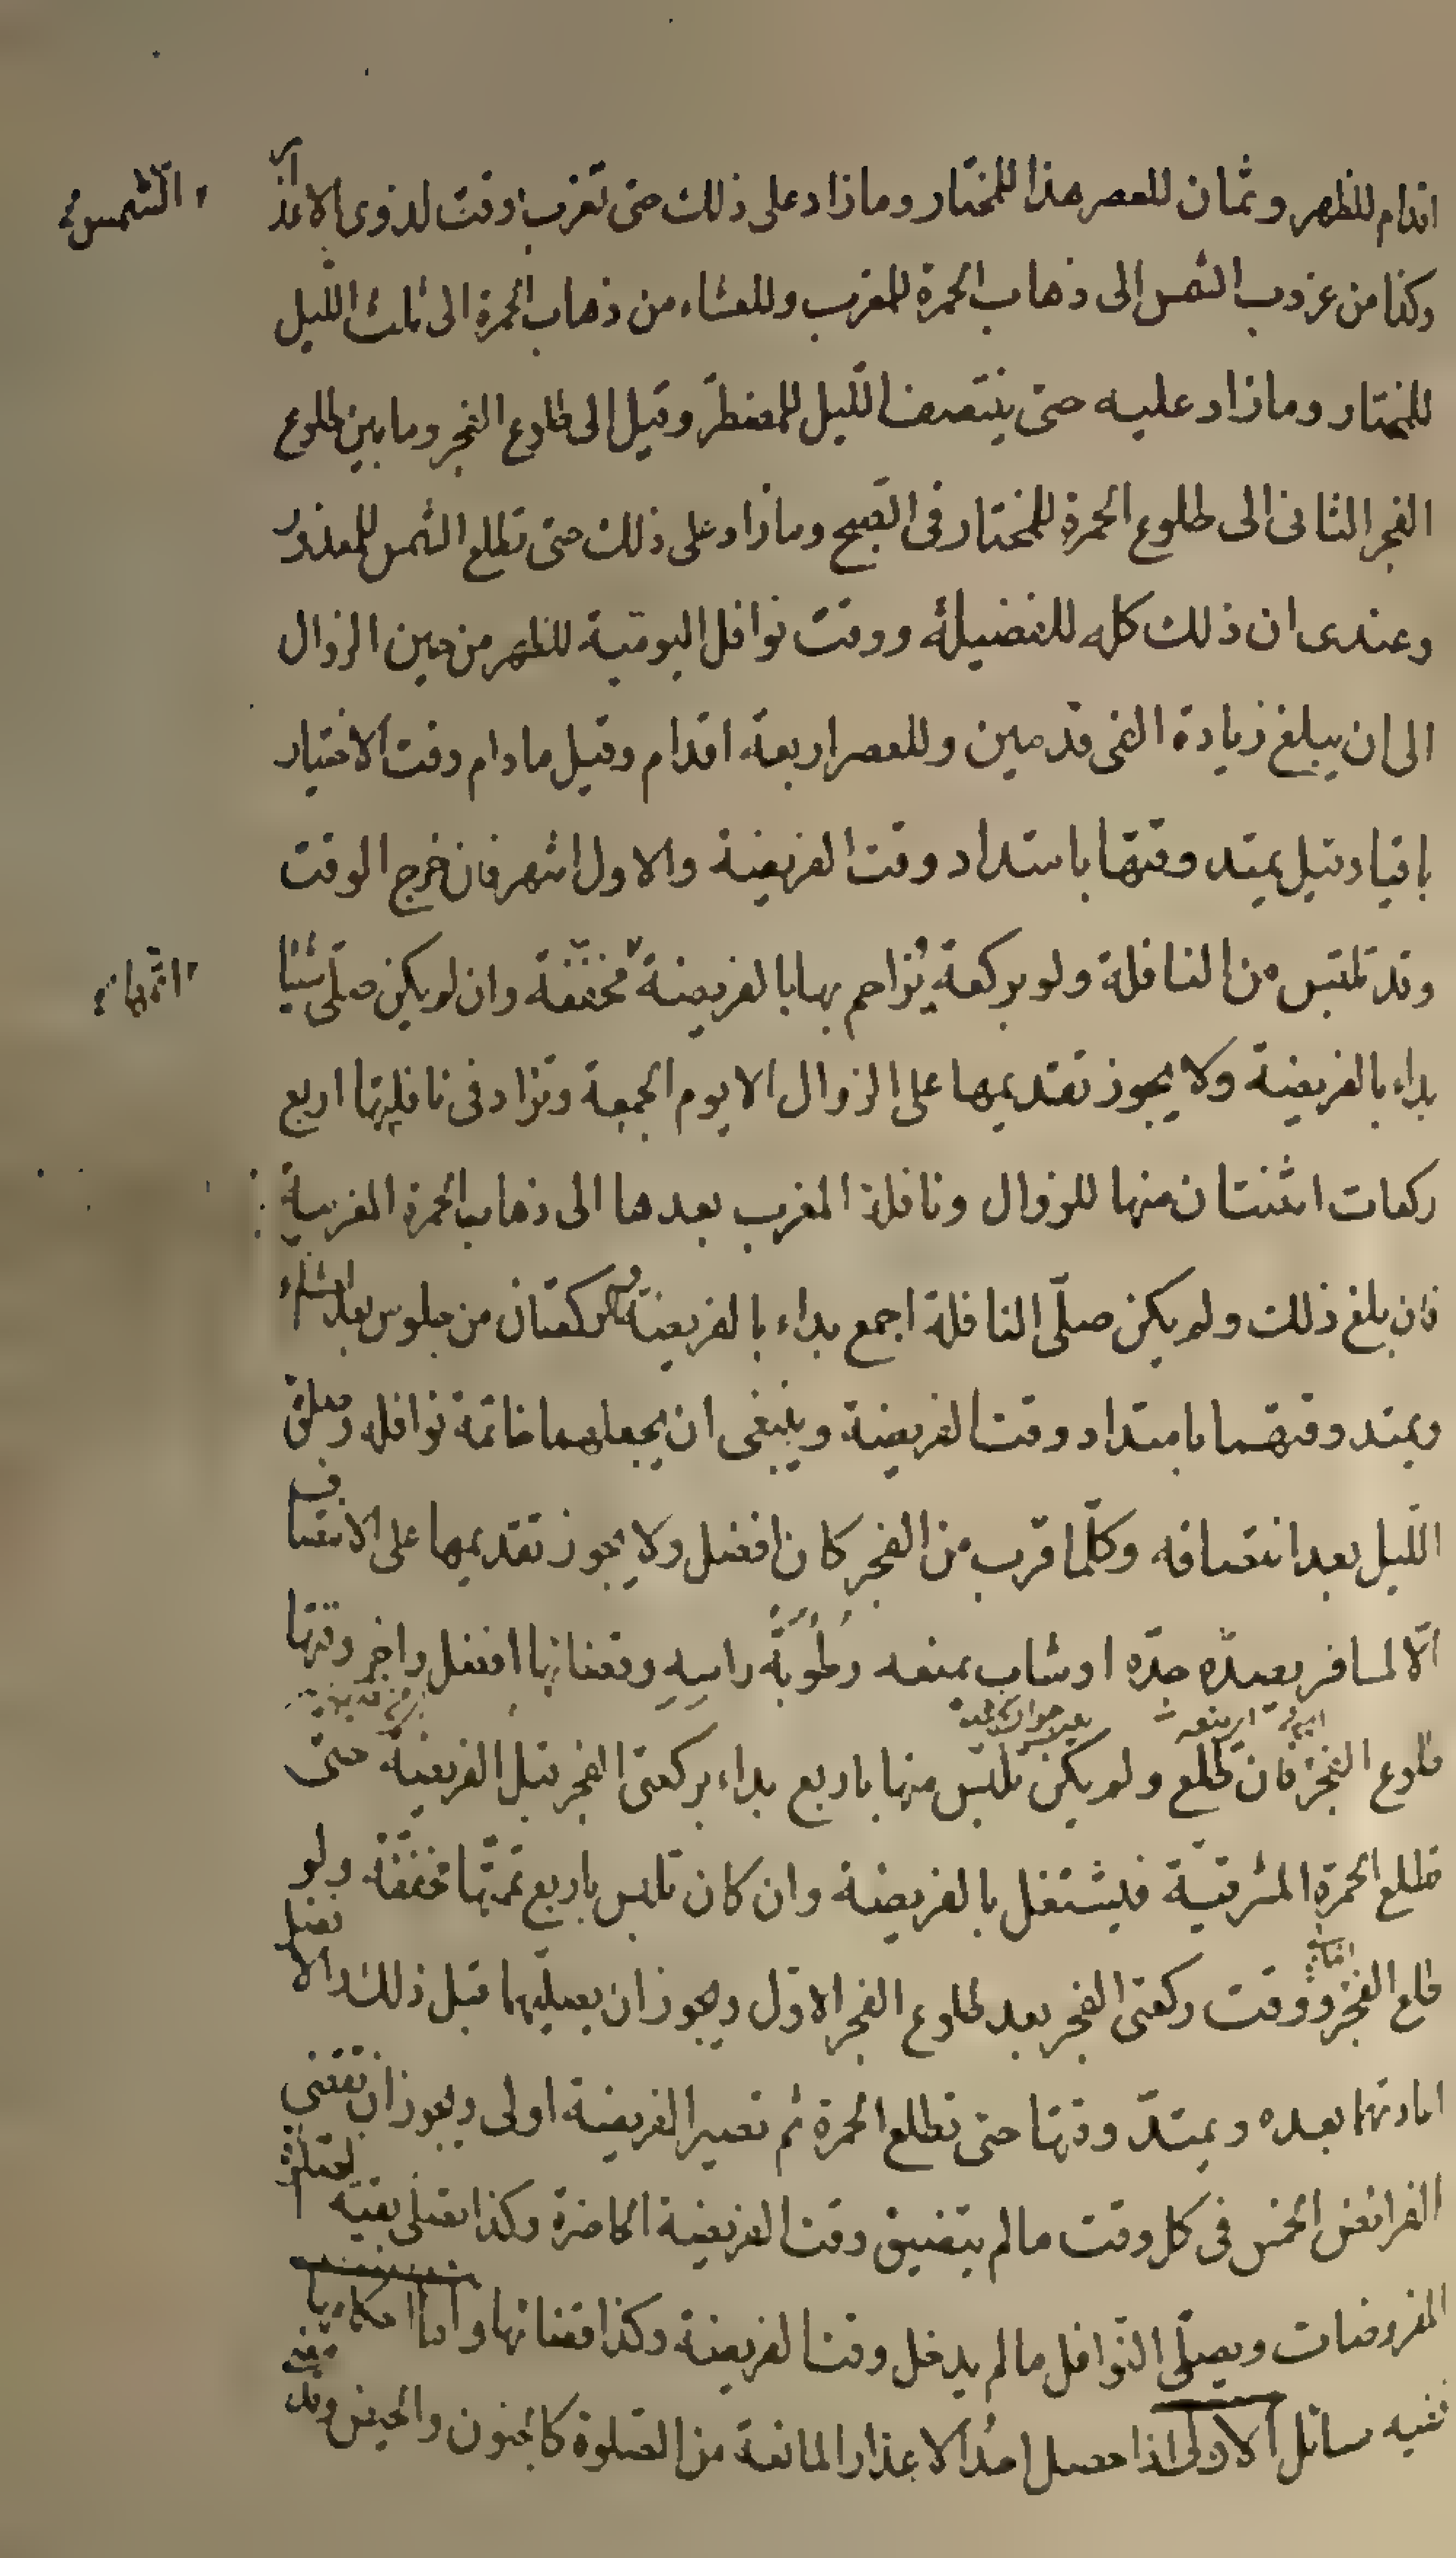 اقدام للظهر وثمان للعصر هذا للمختار وما زاد على ذلك حتى تغرب وقت لذوى الاعذار
الشمس
وكذا من غروب الشمس الى ذهاب الحمرة للمغرب وللعشاء من ذهاب الحمرة الى ثلث الليل
للمختار وما زاد عليه حتى ينتصف الليل للمضطر وقيل الى طلوع الفجر وما بين طلوع
الفجر الثانى الى طلوع الحمرة للمختار فى الصبح وما زاد على ذلك حتى تطلع الشمس للمعذور
وعندى ان ذلك كله للفضيلة ووقت نوافل اليومية للظهر من حين الزوال
الى ان يبلغ زيادة الفى قدمين وللعصر اربعة اقدام وقيل ما دام وقت الاختيار
باقيا وقيل يمتد وقتها بامتداد وقت الفريضة والاول اشهر فان خرج الوقت
وقد تلبس من النافلة ولو بركعة يزاحم بها بالفريضة مخففة وان لم يكن صلى شيئا
اتمها
بداء بالفريضة ولا يجوز تقديمها على الزوال الا يوم الجمعة وتزاد فى نافلتها اربع
ركعات اثنتان منها للزوال ونافلة المغرب بعدها الى ذهاب الحمرة المغربية
فان بلغ ذلك ولم يكن صلى النافلة اجمع بداء بالفريضة والركعتان من جلوس بعد العشاء
ويمتد وقتهما بامتداد وقت الفريضة وينبغى ان يجعلهما خاتمة نوافله وصلوة
الليل بعد انتصافه وكلما قرب من الفجر كان افضل ولا يجوز تقديمها على الانتصاف
الا لمسافر يصده جده او شاب يمنعه رطوبة راسه وقضائها افضل واخر وقتها
طلوع الفجر فان طلع ولم يكن تلبس منها باربع بداء بركعتى الفجر قبل الفريضة حتى
تطلع الحمرة المشرقية فيشتغل بالفريضة وان كان تلبس باربع تممها مخففة ولو
طلع الفجر ووقت ركعتى الفجر بعد طلوع الفجر الاول ويجوز ان يصليهما قبل ذلك والافضل
اعادتهما بعده ويمتد وقتها حتى تطلع الحمرة ثم تصير الفريضة اولى ويجوز ان تقضى
الفرائض الخمس فى كل وقت ما لم يتضيق وقت الفريضة الحاضرة وكذا يصلى بقية الصلوات
المفروضات ويصلى النوافل ما لم يدخل وقت الفريضة وكذا قضائها واما احكامها
ففيه مسائل الاولى اذا حصل احد الاعذار المانعة من الصلوة كالجنون والحيض وقد مضى